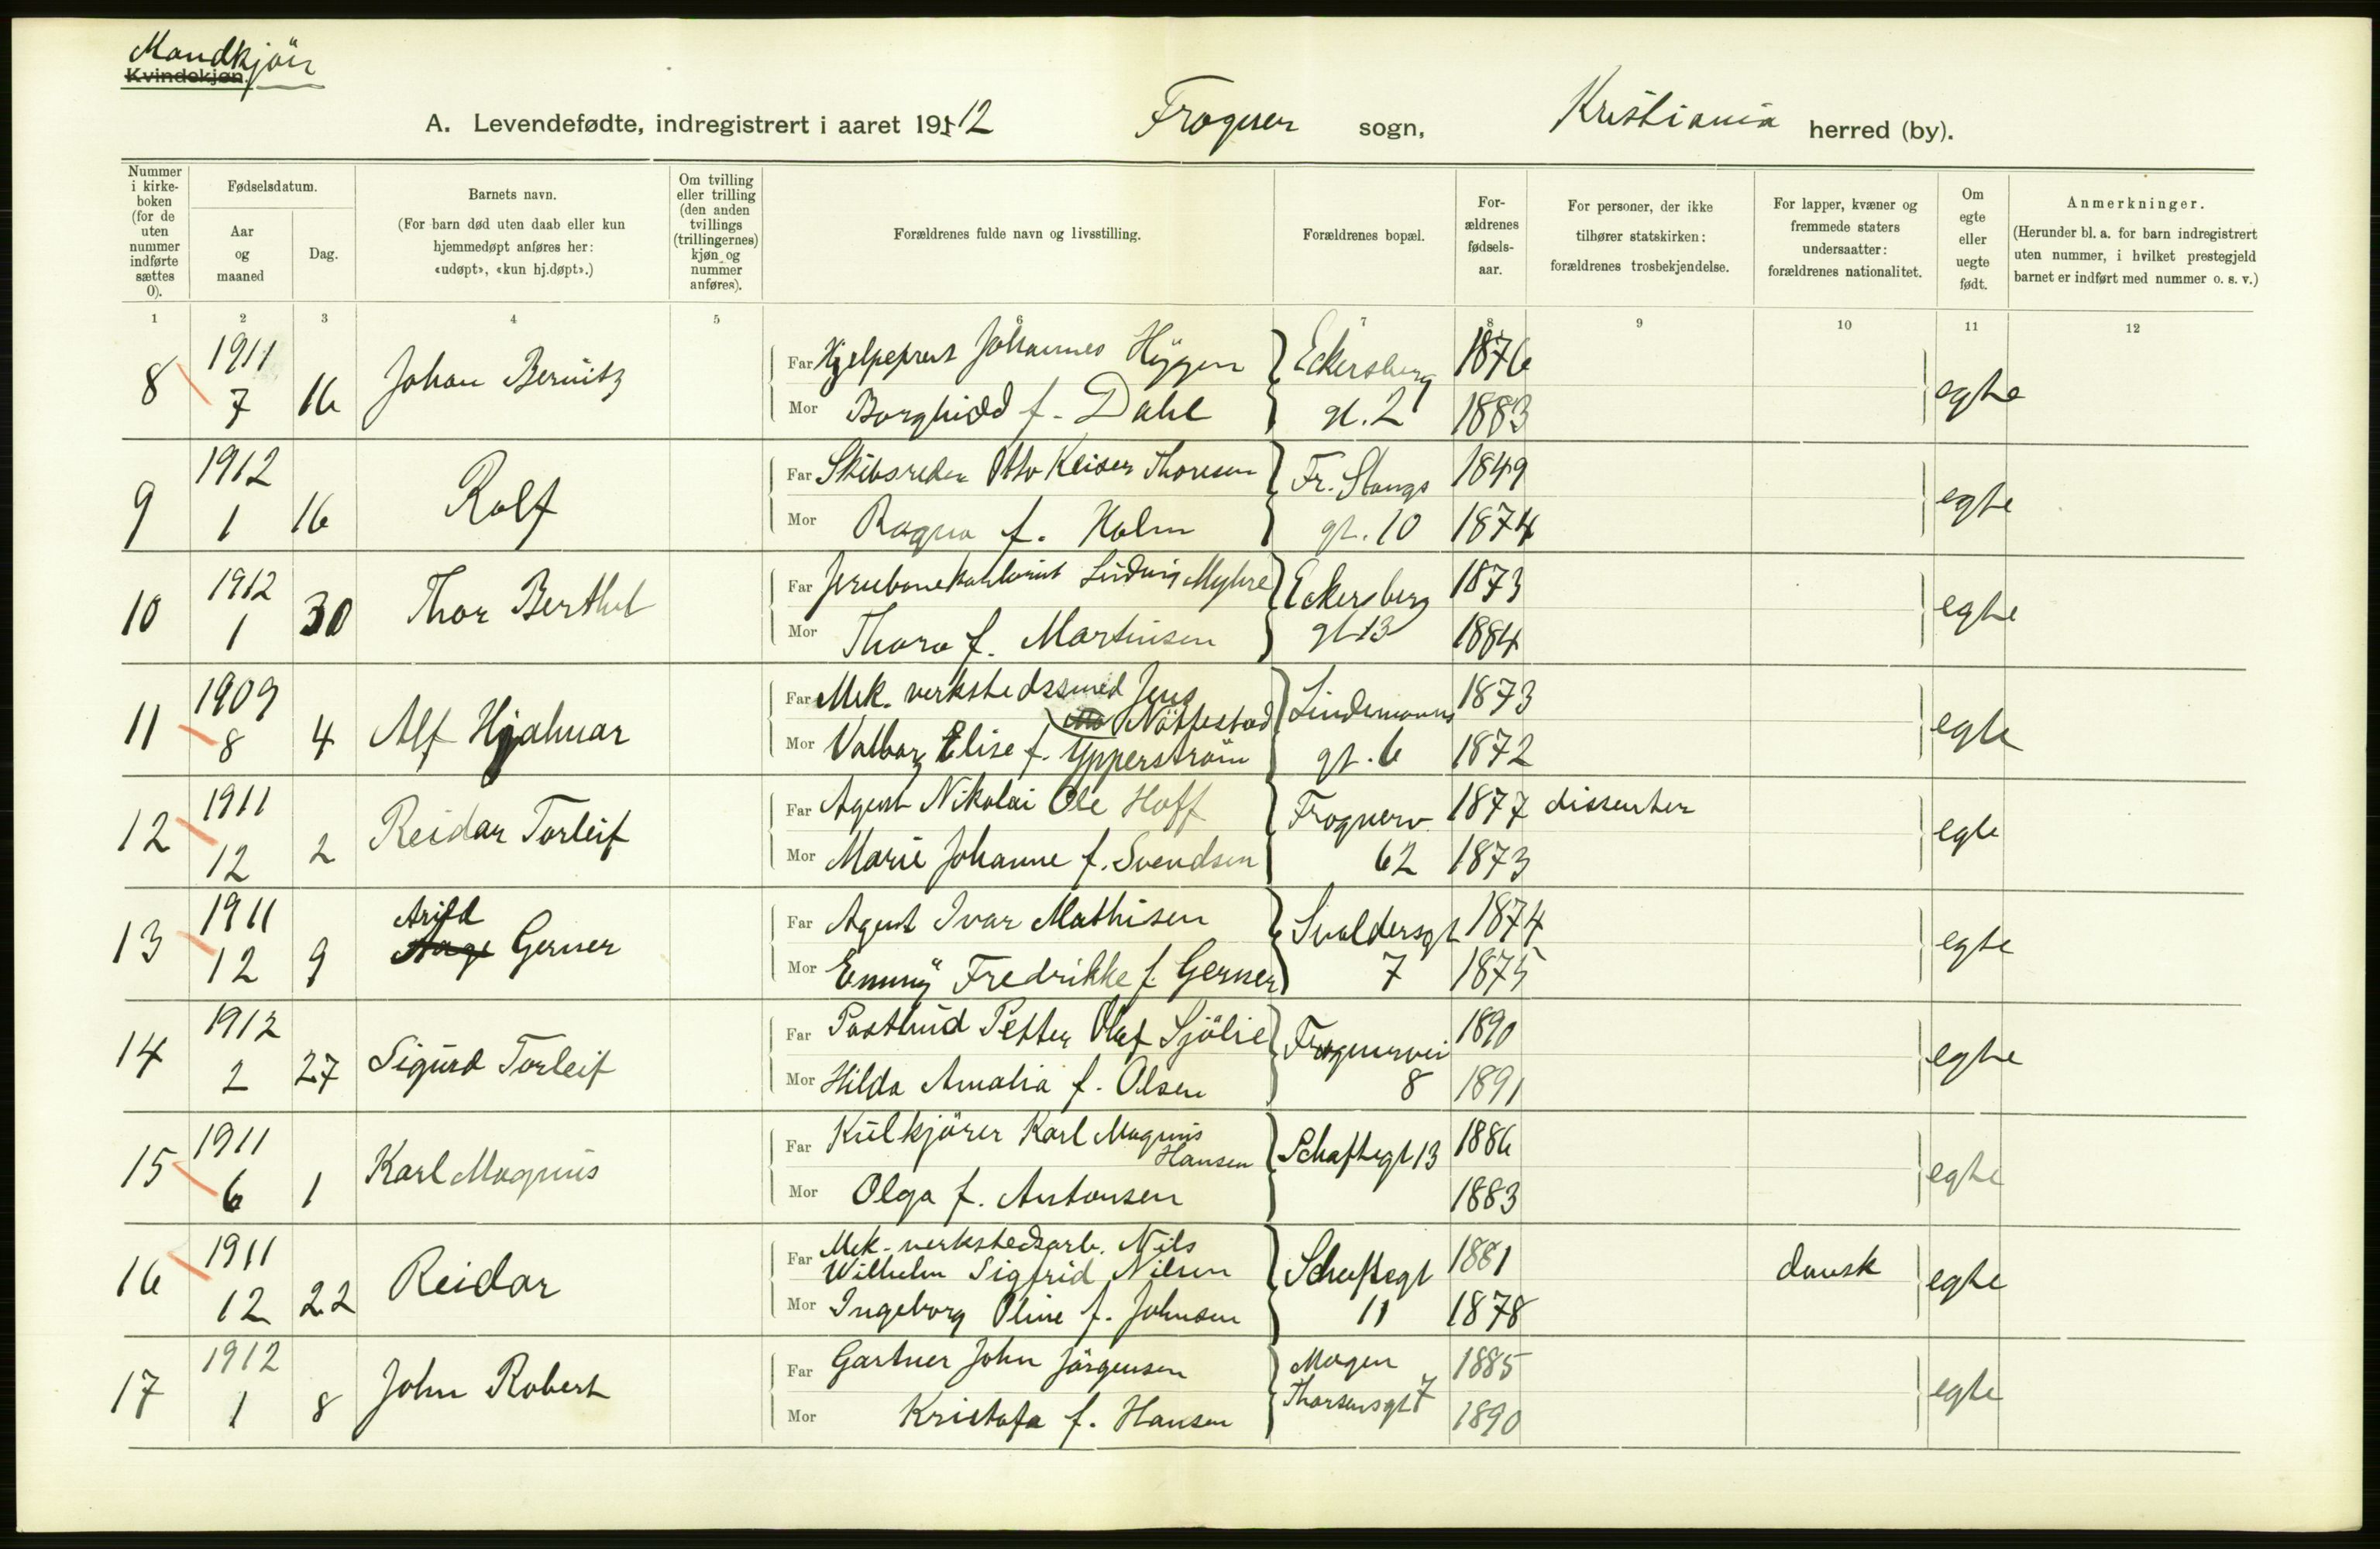 Mandkjön
Kvindekjøn.
A. Levendefødte, indregistrert i aaret 191 12 Frogner sogn, Kristiania herred (by).
Nummer i kirke-boken (for de uten nummer indførte sættes 0).
Fødselsdatum.
Aar og maaned
Dag.
Barnets navn.
(For barn død uten daab eller kun hjemmedøpt anføres her: «udøpt», «kun hj.døpt».)
Om tvilling eller trilling (den anden tvillings (trillingernes) kjøn og nummer anføres).
Forældrenes fulde navn og livsstilling.
Forældrenes bopæl.
For-ældrenes fødsels-aar.
For personer, der ikke tilhører statskirken: forældrenes trosbekjendelse.
For lapper, kvæner og fremmede staters undersaatter: forældrenes nationalitet.
Om egte eller uegte født.
Anmerkninger.
(Herunder bl. a. for barn indregistrert uten nummer, i hvilket prestegjeld barnet er indført med nummer o. s. v.)
1 2 3 4 5 6 7 8 9 10 11 12
8 1911 7 16 Johan Bernitz
Far Hjelpeprest Johannes Hygen Eckersberg 1876
Mor Borghild f. Dahl gt. 2 1883 egte
9 1912 1 16 Rolf
Far Skibsreder Otto Keiser Thoresen Fr. Stangs 1849
Mor Ragna f. Holm gt. 10 1874 egte
10 1912 1 30 Thor Berthel
Far Jernbanekontorist Ludvig Myhre Eckersberg 1873
Mor Thora f. Martinsen gt 13 1884 egte
11 1909 8 4 Alf Hjalmar
Far Mek. verkstedssmed Jens Nöttestad Lindemanns 1873
Mor Valborg Elise f. Ypperström gt. 6 1872 egte
12 1911 12 2 Reidar Torleif
Far Agent Nikolai Ole Hoff Frognerv. 1877 dissenter
Mor Marie Johanne f. Svendsen 62 1873 egte
13 1911 12 9 Arild Aage Gerner
Far Agent Ivar Mathisen Svoldersgt 1874
Mor Emmy Fredrikke f. Gerner 7 1875 egte
14 1912 2 27 Sigurd Torleif
Far Postbud Petter Olaf Sjölie Frognervei 1890
Mor Hilda Amalia f. Olsen 8 1891 egte
15 1911 6 1 Karl Magnus
Far Kulkjörer Karl Magnus Hansen Schaftesgt 13 1886
Mor Olga f. Antonsen 1883 egte
16 1911 12 22 Reidar
Far Mek. verkstedsarb. Nils
Wilhelm Sigfrid Nilsen Schaftesgt 1881
Mor Ingeborg Oline f. Johnsen 11 1878 dansk egte
17 1912 1 8 John Robert
Far Gartner John Jörgensen Mogen 1885
Mor Kristofa f. Hansen Thorsensgt 7 1890 egte